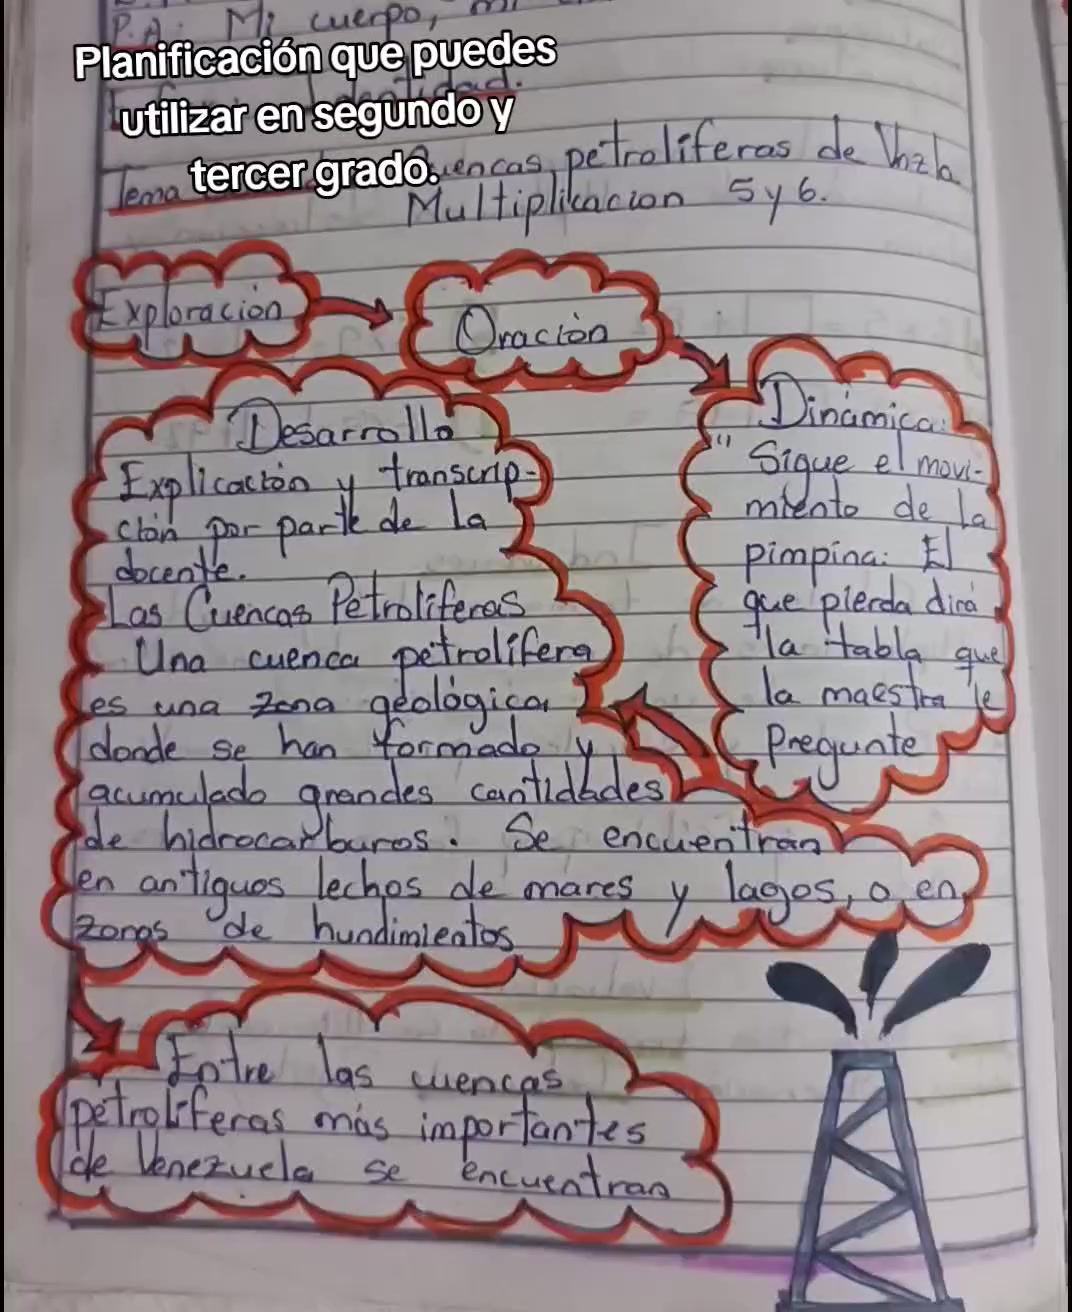 P.A. Mi cuerpo, mi
Planificación que puedes
utilizar en segundo y
tercer grado.
Identidad.
Tema Cuencas petrolíferas de Vnzla
Multiplicacion 5 y 6.
Exploración
Oración
Dinámica:
"Sigue el movi-
miento de la
pimpina: El
que pierda dirá
la tabla que
la maestra le
pregunte
Desarrollo
Explicación y transcrip-
ción por parte de la
docente.
Las Cuencas Petrolíferas
Una cuenca petrolífera
es una zona geológica
donde se han formado y
acumulado grandes cantidades
de hidrocarburos. Se encuentran
en antiguos lechos de mares y lagos, o en
zonas de hundimientos
Entre las cuencas
petrolíferas más importantes
de Venezuela se encuentran